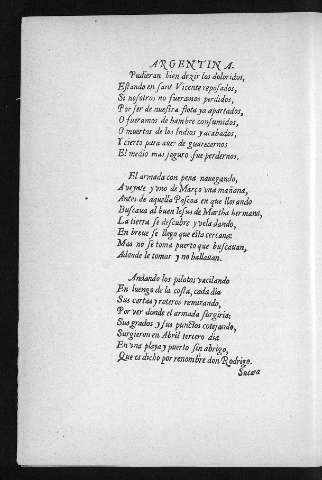 ARGENTINA.
Pudieran bien dezir los doloridos,
Estando en sant Vicente reposados,
Si nosotros no fueramos perdidos,
Por ser de nuestra flota ya apartados,
O fueramos de hambre consumidos,
O muertos de los Indios y acabados,
Y cierto para auer de guarecernos
El medio mas seguro fue perdernos.
El armada con pena nauegando,
A veynte y vno de Março vna mañana,
Antes de aquella Pascoa en que llorando
Buscaua al buen Iesus de Martha hermana,
La tierra se descubre y vela dando,
En breue se llego que esta cercana:
Mas no se toma puerto que buscauan,
Adonde le tomar y no hallauan.
Andando los pilotos vacilando
En luengo de la costa, cada dia
Sus cartas y roteros remirando,
Por ver donde el armada surgiria:
Sus grados y sus punctos cotejando,
Surgieron en Abril tercero dia
En vna playa y puerto sin abrigo,
Que es dicho por renombre don Rodrigo.
Sucea